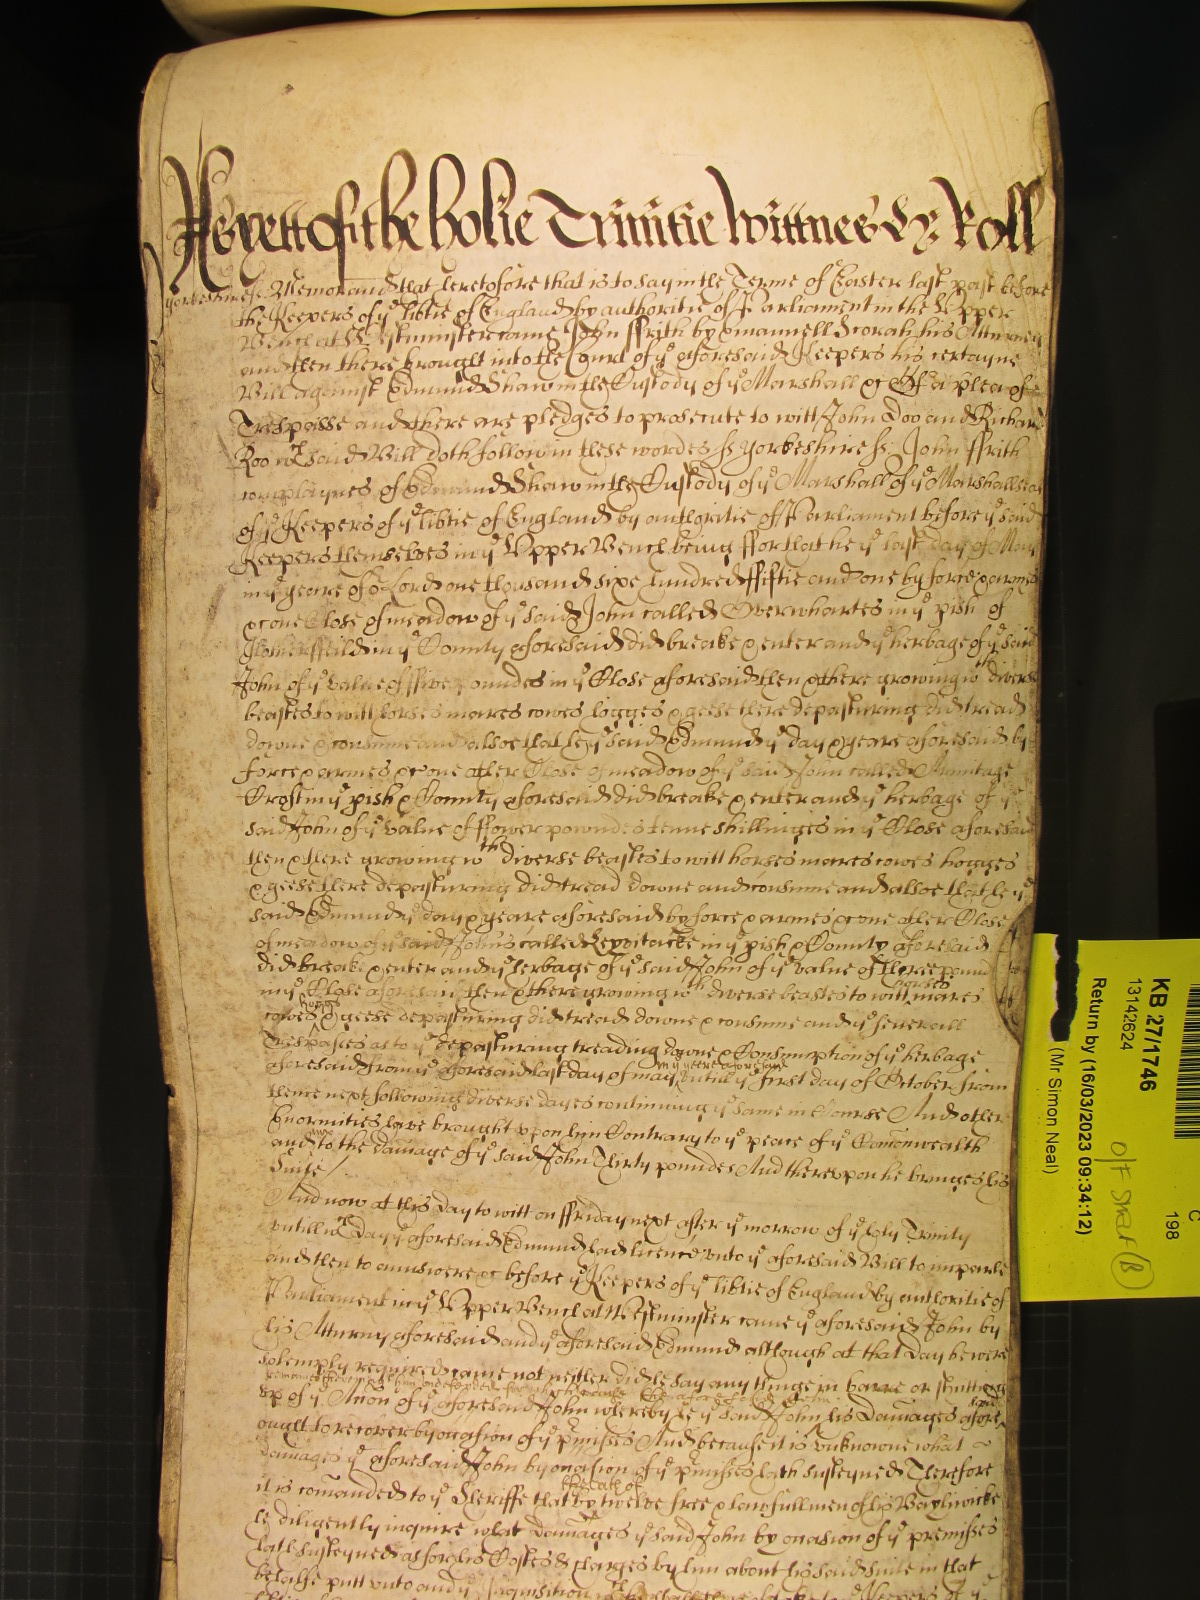 As yett of the holie Trinitie Wittnes Hy Roll
Yorkeshire ss Memorand that heretofore that is to say in the Terme of Easter last past before
the Keepers of ye libtie of England by authoritie of Parliament in the Upper
Bench at Westminster came John ffrith by Emanuell Scorah his Atturney
and then there brought into the Court of ye aforesaid Keepers his certayne
Bill against Edmund Shaw in the Custody of ye Marshall &c Of a plea of
Trespasse and there are pledges to prosecute to witt John Doo and Richard
Roo wch said Bill doth follow in these wordes ss Yorkeshire ss John ffrith
complaynes of Edmund Shaw in the Custody of ye Marshall of ye Marshallsea
of ye Keepers of ye libtie of England by authoritie of Parliament before ye said
Keepers themselves in ye Upper Bench being ffor that he ye last day of May
in ye yeare of or Lord one thousand sixe hundred ffiftie and one by force & armes
&c one Close of meadow of ye said John called Overwhartes in ye pish of
in ye County aforesaid did breake & enter and ye herbage of ye said
John of ye value of ffive poundes in ye Close aforesaid then & there growing wth diverse
beastes to witt horses mares cowes hogges & geese there depasturing did tread
downe & consume and alsoe that he ye said Edmund ye day & yeare aforesaid by
force & armes &c one other Close of meadow of ye said John called Armitage
Croft in ye pish & County aforesaid did breake & enter and ye herbage of ye
said John of ye value of ffower powndes tenne shillinges in ye Close aforesaid
then & there growing wth diverse beastes to witt horses mares cowes hogges
& geese there depasturing did tread downe and consume and alsoe that he ye
said Edmund ye day & yeare aforesaid by force & armes &c one other Close
of meadow of ye said John's called in ye pish & County aforesaid
did breake & enter and ye herbage of ye said John of ye value of three pound
in ye Close aforesaid then & there growing wth diverse beastes to witt horses mares
cowes hogges & geese depasturing did tread downe & consume and ye severall
Trespasses as to ye depasturing treading downe & Consumption of ye herbage
aforesaid from ye aforesaid last day of may in ye yeere aforesaid untill ye first day of October from
thence next following diverse dayes continuing ye same in Course And other
Enormities have brought upon him Contrary to ye peace of ye Comonwealth
and to the damage of ye said John Thirty poundes And thereupon he bringes his
Suite /
And now at this day to witt on ffriday next after ye morrow of ye holy Trinity
untill wch day ye aforesaid Edmund had licence unto ye aforesaid Bill to imparle
and then to answere &c before ye Keepers of ye libtie of England by authoritie of
Parliament in ye Upper Bench at Westminster came ye aforesaid John by
his Atturny aforesaid and ye aforesaid Edmund although at that day he were
solemply required came not neither did he say any thinge in barre or
remaines thereupon him undefended
of ye Accion of ye aforesaid John whereby he ye said John his Damages afore said
ought to recover by occasion of ye pmisses And because it is unknowne what
damages ye aforesaid John by occasion of ye pmisses hath susteyned Therefore
it is comanded to ye Sheriffe that by the oath of twelve free & lawfull men of his Baylwicke
he diligently inquire what damages ye said John by occasion of ye premisses
hath susteyned as for his Costes & charges by him about his said suite in that
behalfe putt unto and ye Inquisition
KB 27/1746
13142624
Return by (16/03/2023 09:34:12)
(Mr Simon Neal)
C
198